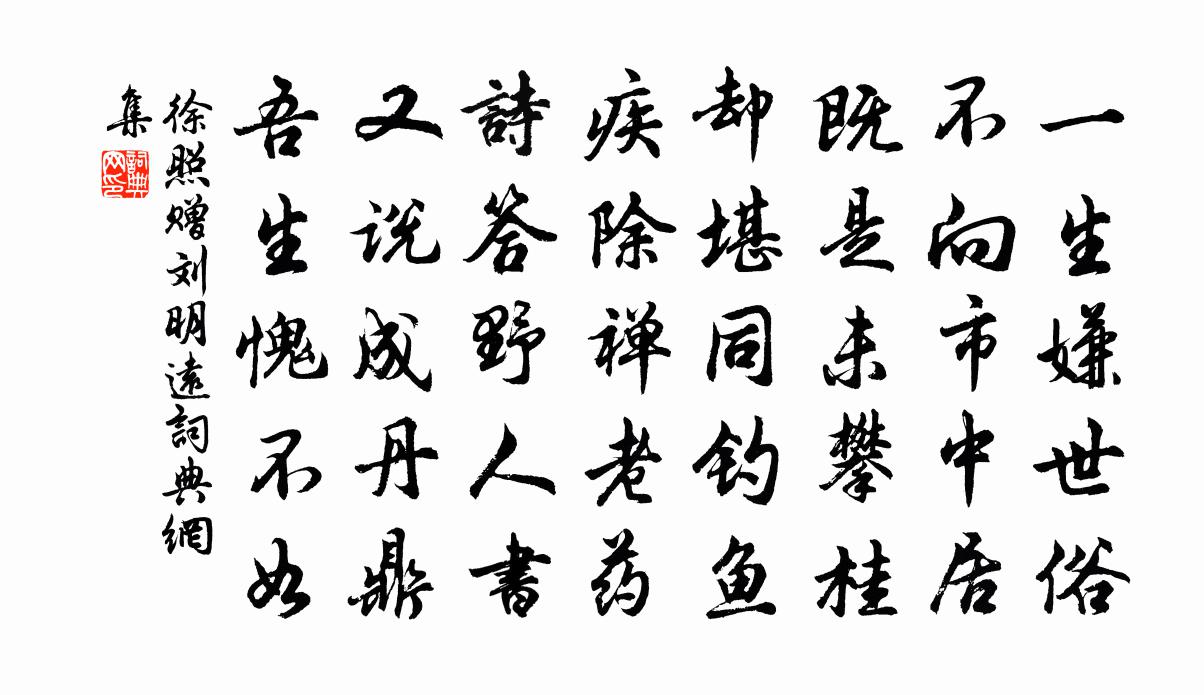 一生嫌世俗
不向市中居
既是未攀桂
却堪同钓鱼
疾除禅老药
詩答野人書
又说成丹鼎
吾生愧不如
徐照赠刘明遠詞典網
集
詞典
网印